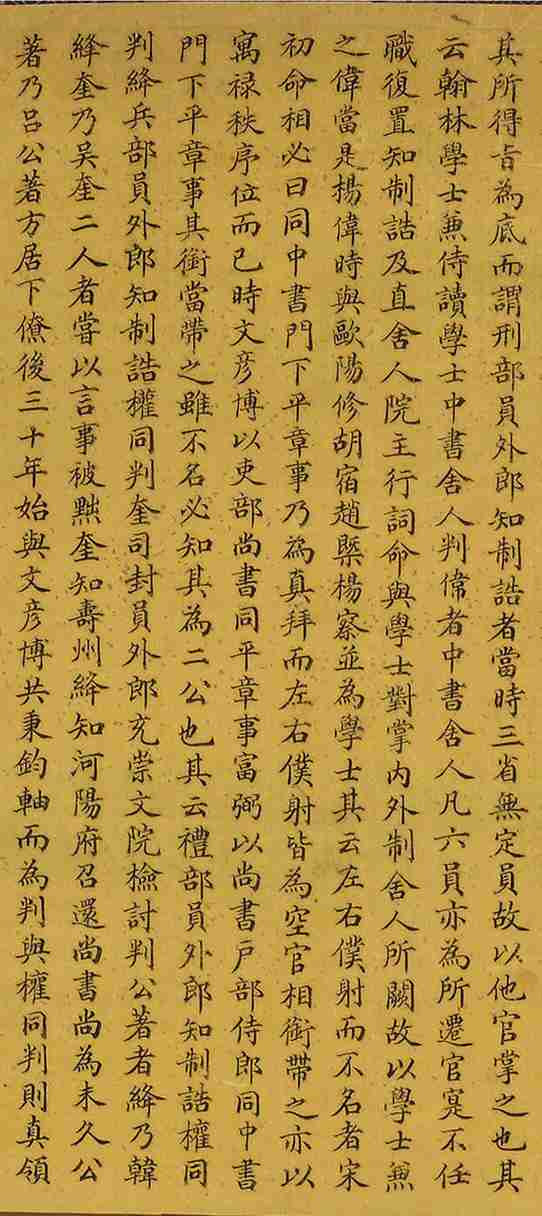 其所得旨為底而謂刑部員外郎知制誥者當時三省無定員故以他官掌之也其
云翰林學士兼侍讀學士中書舍人判偉者中書舍人凡六員亦為所遷官寔不任
職復置知制誥及直舍人院主行詞命與學士對掌内外制舍人所闕故以學士兼
之偉當是楊偉時與歐陽修胡宿趙槩楊察並為學士其云左右僕射而不名者宋
初命相必曰同中書門下平章事乃為真拜而左右僕射皆為空官相銜帶之亦以
寓禄秩序位而已時文彦博以吏部尚書同平章事富弼以尚書戸部侍郎同中書
門下平章事其銜當帶之雖不名必知其為二公也其云禮部員外郎知制誥權同
判絳兵部員外郎知制誥權同判奎司封員外郎充崇文院檢討判公著者絳乃韓
絳奎乃吴奎二人者嘗以言事被黜奎知壽州絳知河陽府召還尚書尚為未久公
著乃吕公著方居下僚後三十年始與文彦博共秉鈞軸而為判與權同判則真領